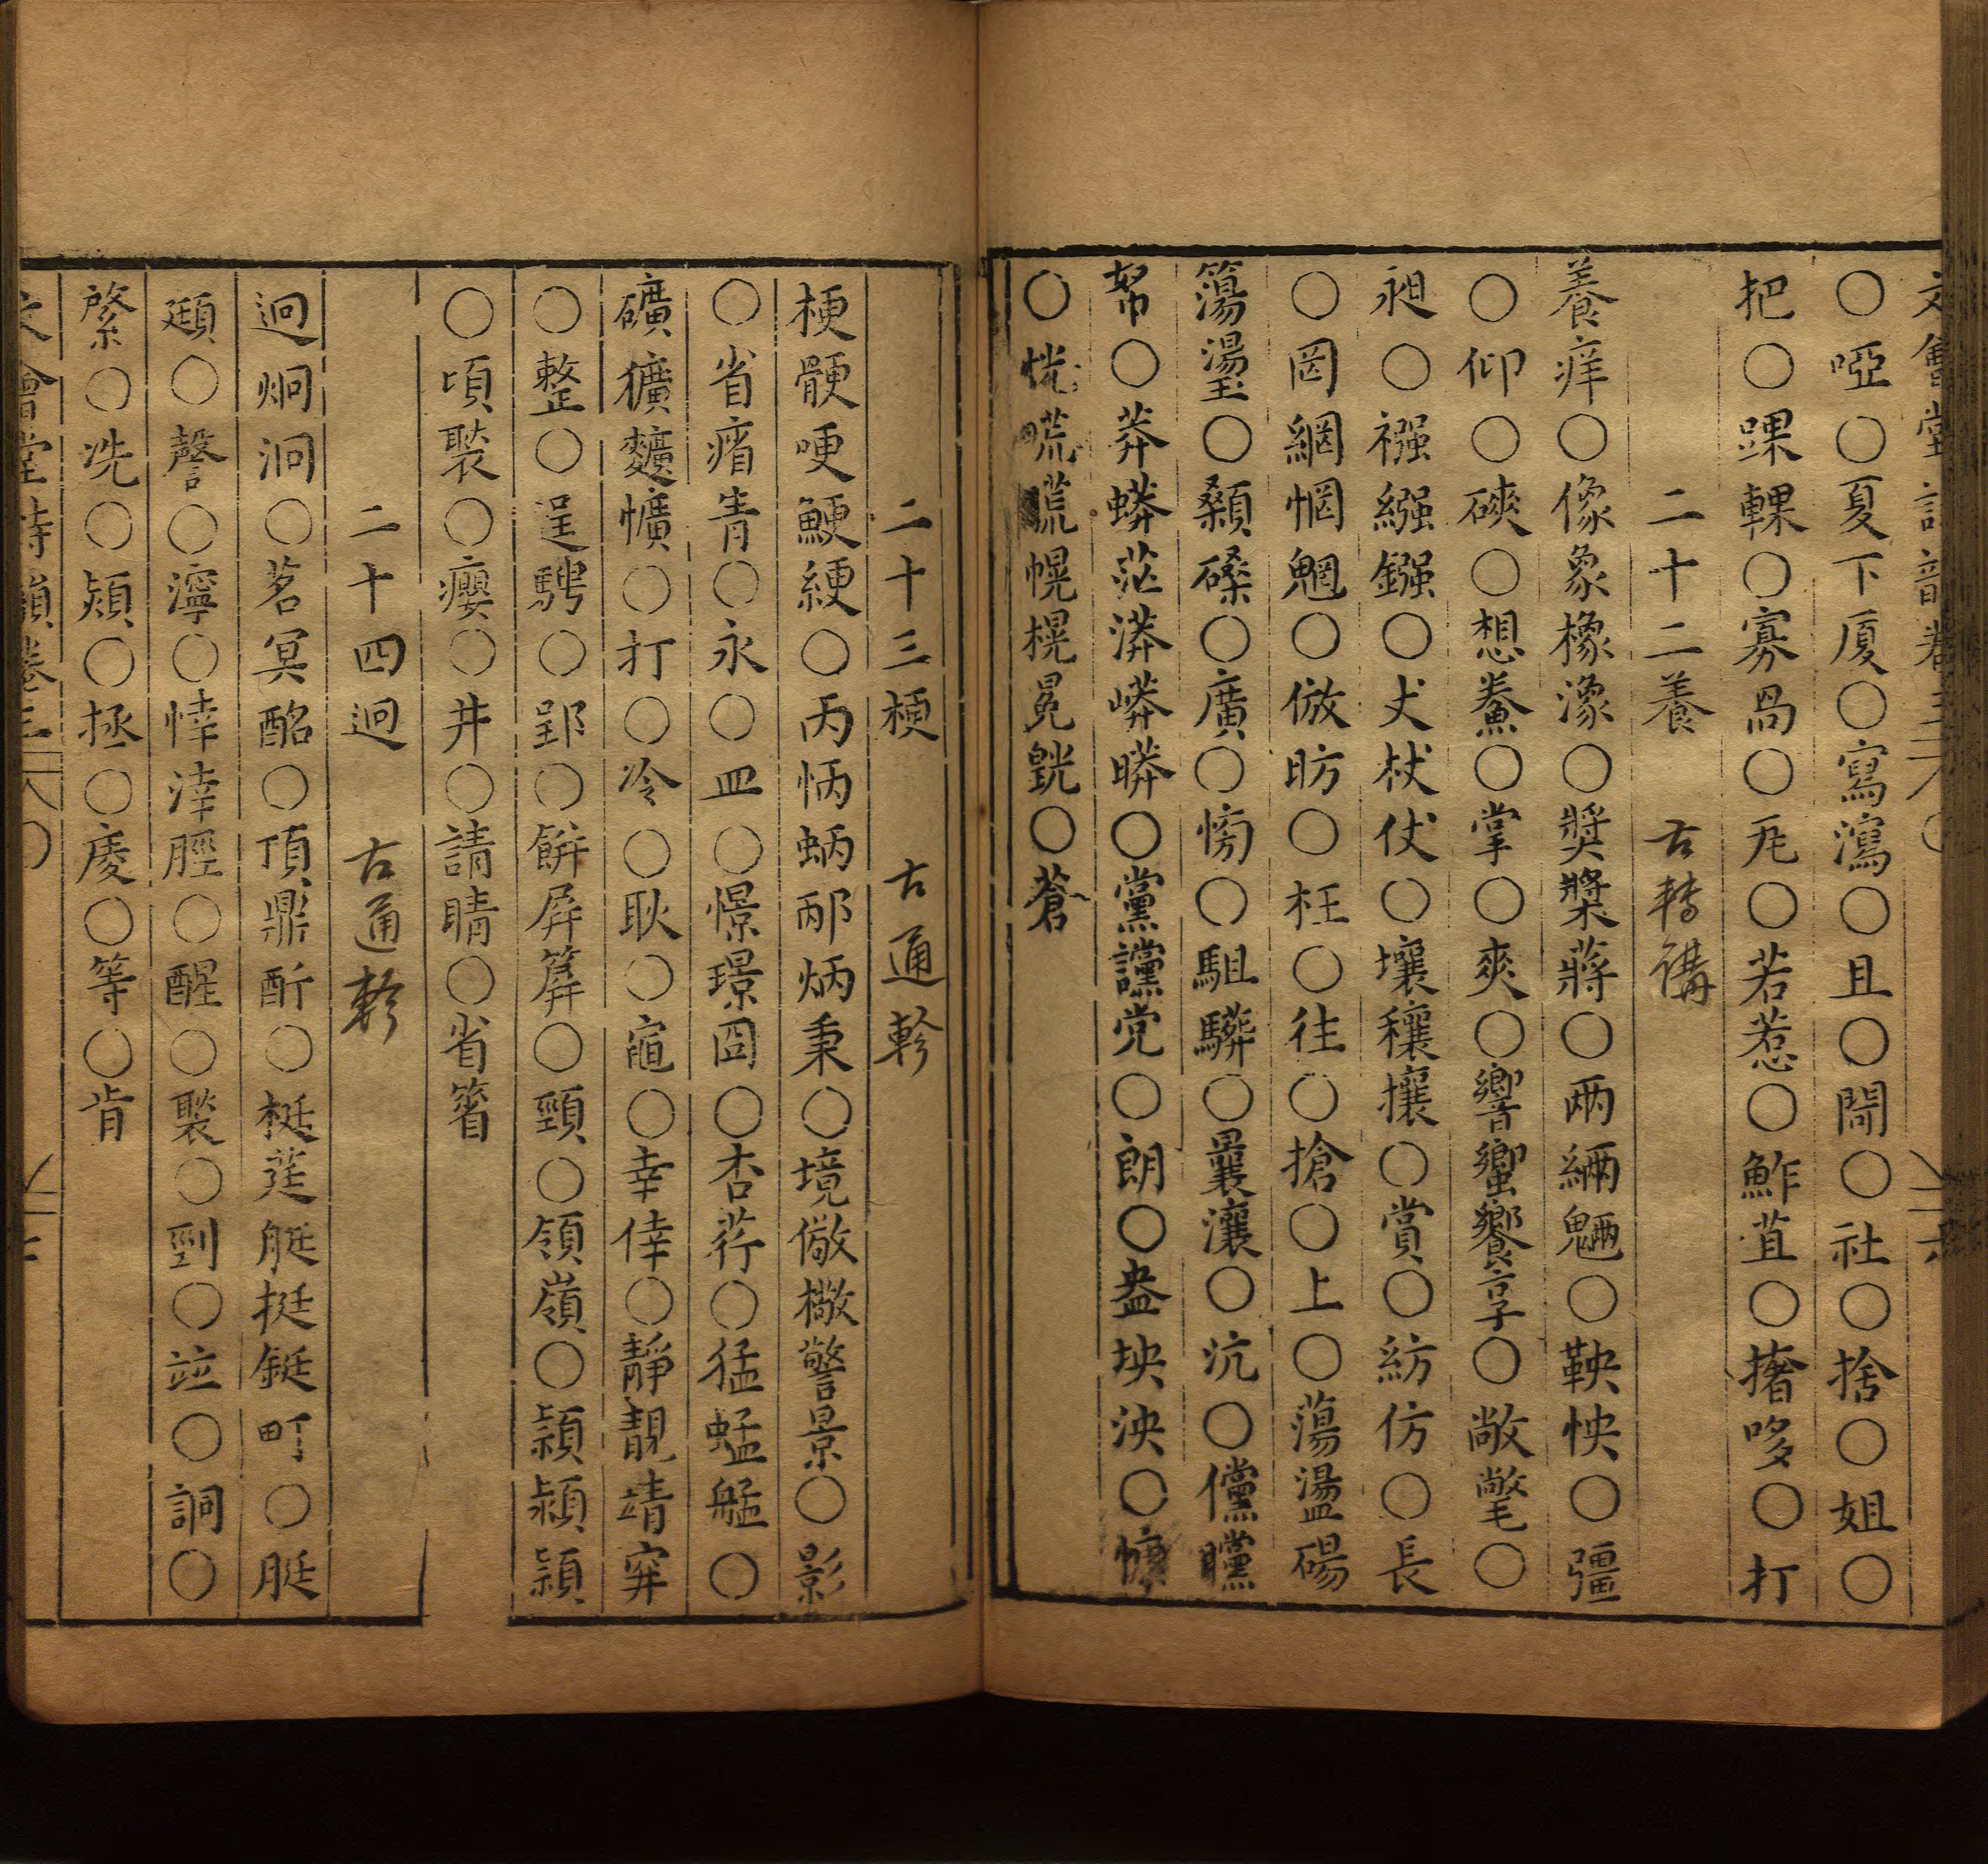 ○啞○夏下厦○寫瀉○且○閜○社○捨○姐○
把○踝輠○寡咼○㞎○若惹○鮓苴○撦哆○打
二十二養 古轉講
養痒○像象橡潒○獎槳蔣○兩緉魎○鞅怏○彊
○仰○磢○想鯗○掌○爽○響蠁饗享○敞氅○
昶○襁繈鏹○丈杖仗○壤穰攘○賞○紡仿○長
○罔網惘魍○倣昉○枉○往○搶○上○蕩盪碭
簜璗○顙磉○廣○㬻○駔驊○曩瀼○沆○儻矘
帑○莽蟒茫漭㟿䁳○黨讜党○朗○盎坱泱○慷
○恍㡆謊幌榥晃㫛○蒼
二十三梗 古通軫
梗骾哽鯁綆○丙怲蛃邴炳秉○境儆橵警景○影
○省瘠眚○永○皿○憬璟囧○杏荇○猛蜢艋○
礦獷䵃懭○打○冷○耿○黽○幸倖○靜靚靖穽
○整○逞騁○郢○餅屛箳○頸○領嶺○穎潁頴
○頃褧○癭○井○請睛○省箵
二十四迥 古通軫
迥炯泂○茗冥酩○頂鼎酊○梃莛艇挺鋌町○脡
頲○謦○濘○悻涬脛○醒○褧○剄○竝○詗○
綮○洗○熲○拯○庱○等○肯